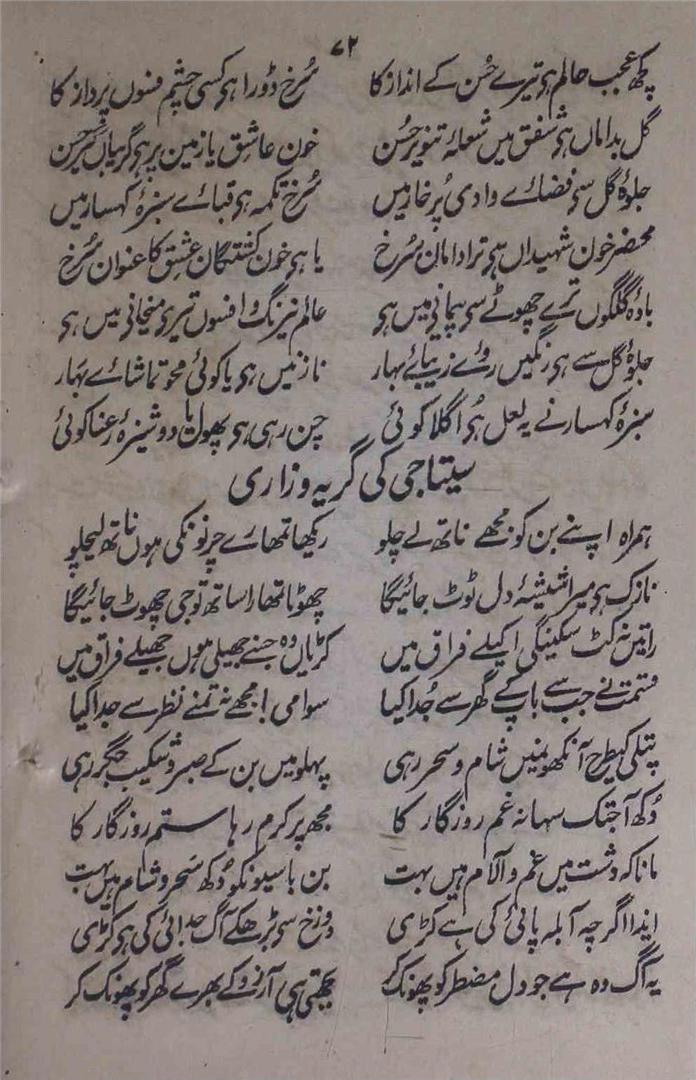 ۷۲
کچھ عجب عالم ہی تیرے حُسن کے انداز کا سُرخ ڈورا ہی کسی چشمِ فسوں پرداز کا
گل بداماں ہی شفق میں شعلۂ تنویرِ حُسن خونِ عاشق یا زمین پر ہی گریباں گیرِ حسن
جلوۂ گل سی فضائے وادیٔ پُر خار میں سُرخ تکمہ ہی قبائے سبزۂ کہسار میں
محضرِ خونِ شہیداں ہی ترا دامانِ سُرخ یا ہی خونِ کشتگانِ عشق کا عنوانِ سُرخ
بادۂ گلگوں ترے چھوٹے سی پیمانی میں ہی عالمِ نیرنگ و افسوں تیری میخانی میں ہی
جلوۂ گل سے ہی رنگیں روئے زیبائے بہار نازنیں ہی یا کوئی محوِ تماشائے بہار
سبزۂ کہسار نے یہ لعل ہی اگلا کوئی چن رہی ہی پھول یا دوشیزۂ رعنا کوئی
سیتاجی کی گریہ وزاری
ہمراہ اپنے بن کو مجھے ناتھ لے چلو رکھا تمھارے چرنونکی ہوں ناتھ لیچلو
نازک ہی میرا شیشۂ دل ٹوٹ جائیگا چھوٹا تمھارا ساتھ تو جی چھوٹ جائیگا
راتیں نہ کٹ سکینگی اکیلے فراق میں کڑیاں وہ جنے جھیلی ہوں جھیلے فراق میں
قسمت نے جب سے باپ کے گھر سے جُدا کیا سوامی! مجھے نہ تمنے نظر سے جدا کیا
پتلی کیطرح آنکھونمیں شام و سحر رہی پہلو میں بن کے صبر و شکیبِ جگر رہی
دُکھ آجتک سہا نہ غمِ روزگار کا مجھ پر کرم رہا ستمِ روزگار کا
مانا کہ دشت میں غم و آلام ہیں بہت بن باسیونکو دُکھ سَحر و شام ہیں بہت
ایذا اگرچہ آبلہ پائی کی ہے کڑی دوزخ سی بڑھکے آگ جدائی کی ہی کڑی
یہ آگ وہ ہے جو دلِ مضطر کو پھونک کر بجھتی ہی آرزو کے بھرے گھر کو پھونک کر